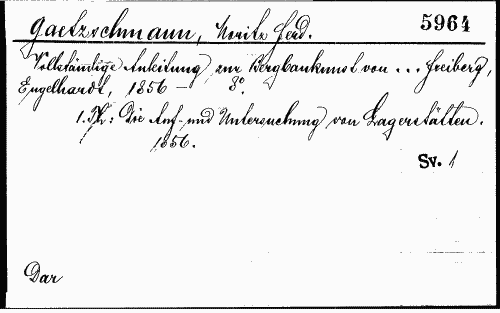 Gaetzschmann, Moritz Ferd. 5964
Vollständige Anleitung zur Bergbaukunst von ... Freiberg,
Engelhardt, 1856 — 8°.
1. Th: Die Auf- und Untersuchung von Lagerstätten.
1856.
Sv. 1
Dar